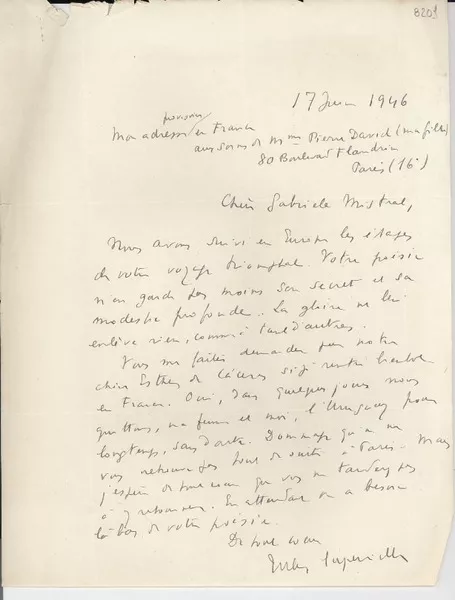 8201
17 Juin 1946
provisoire
Mon adresse en France
aux soins de Mme Pierre David (ma fille)
80 Boulevard Flandrin
Paris (16e)
Chère Gabriela Mistral,
Nous avons suivi en Europe les étapes
de votre voyage triomphal. Votre poésie
n'en garde pas moins son secret et sa
modestie profonde. La gloire ne lui
enlève rien, comme à tant d'autres.
Vous me faites demander par notre
chère Esther de Cáceres si je rentre bientôt
en France. Oui, dans quelques jours nous
quittons, ma femme et moi, l'Uruguay pour
longtemps, sans doute. Dommage qu'on ne
vous retrouve pas tout de suite à Paris. Mais
j'espère de tout cœur que vous ne tardez pas
à y retourner. En attendant on a besoin
là-bas de votre poésie.
De tout cœur
Jules Supervielle